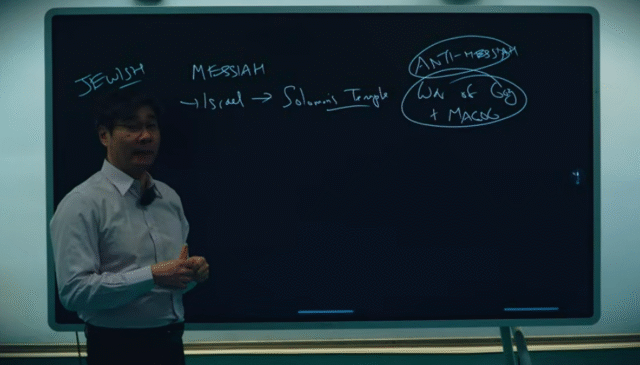 JEWISH
MESSIAH
→ Israel → Solomon's Temple
ANTI-MESSIAH
War of Gog
+ MAGOG